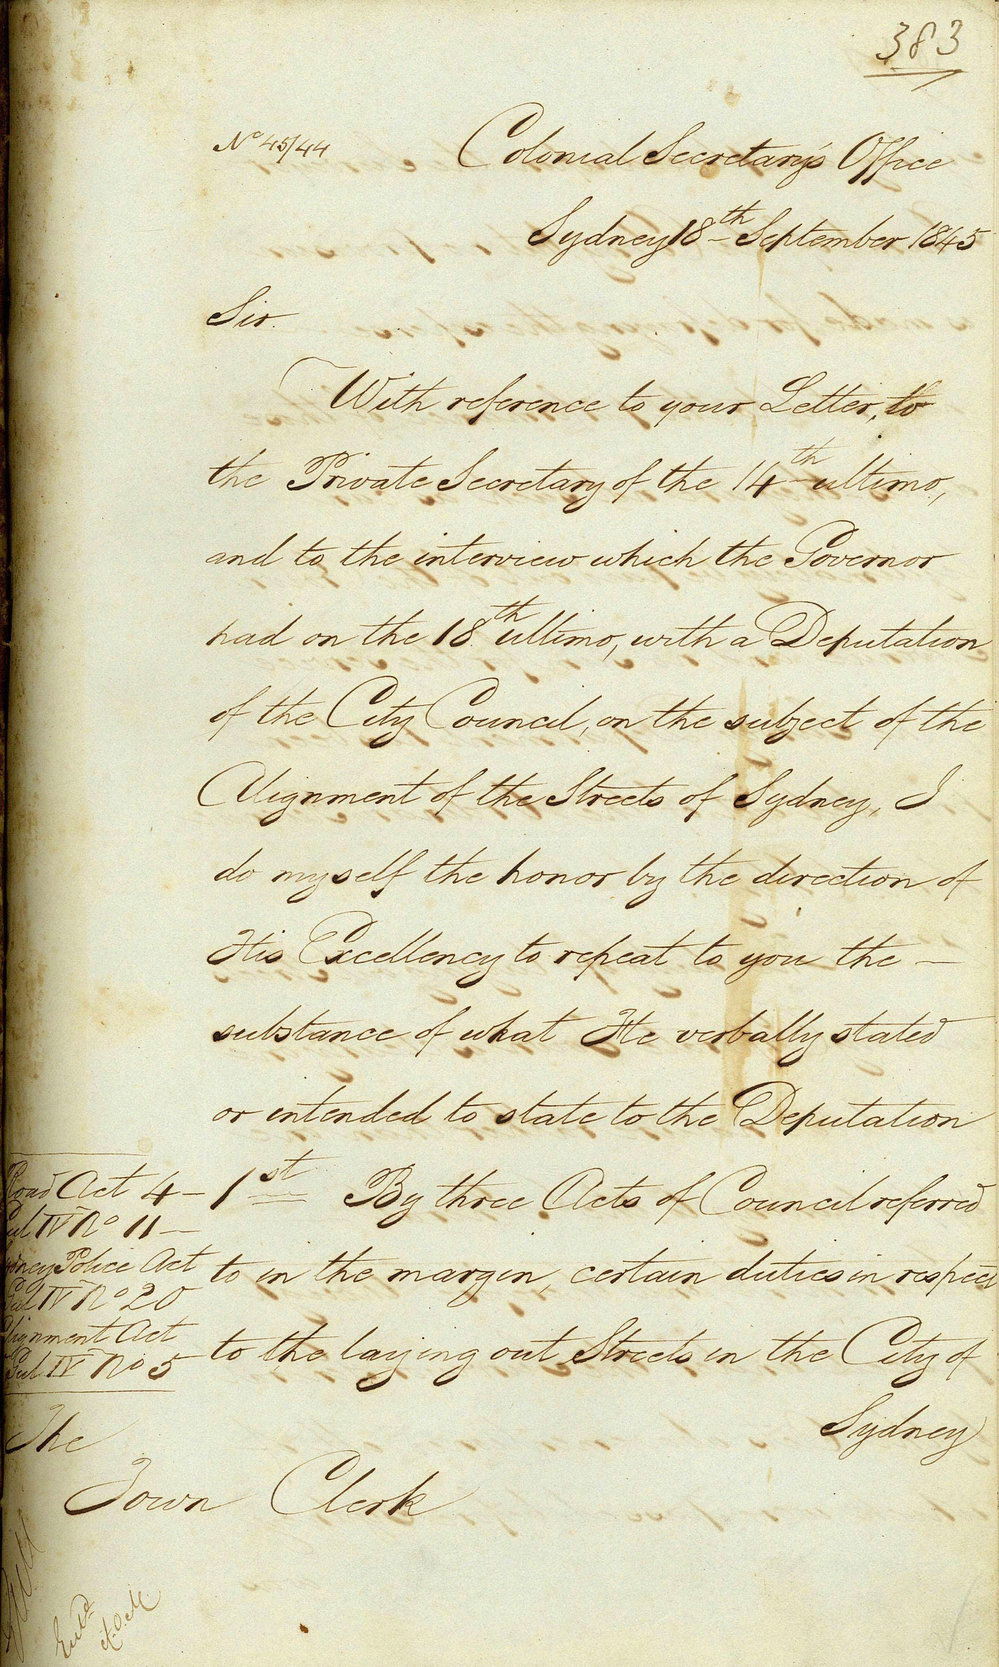 383
No 45/44
Colonial Secretary's Office
Sydney 18th September 1845
Sir.
With reference to your Letter, to
the Private Secretary of the 14th ultimo,
and to the interview which the Governor
had on the 18th ultimo, with a Deputation
of the City Council, on the subject of the
Alignment of the Streets of Sydney, I
do myself the honor by the direction of
His Excellency to repeat to you the —
substance of what He verbally stated
or intended to state to the Deputation
1st By three Acts of Council referred
to in the margin, certain duties in respect
to the laying out Streets in the City of
Sydney
Road Act 4 –
Gul IV No 11 –
Sydney Police Act
Gul IV No 20
Alignment Act
Gul IV No 5
The
Town Clerk
Entd